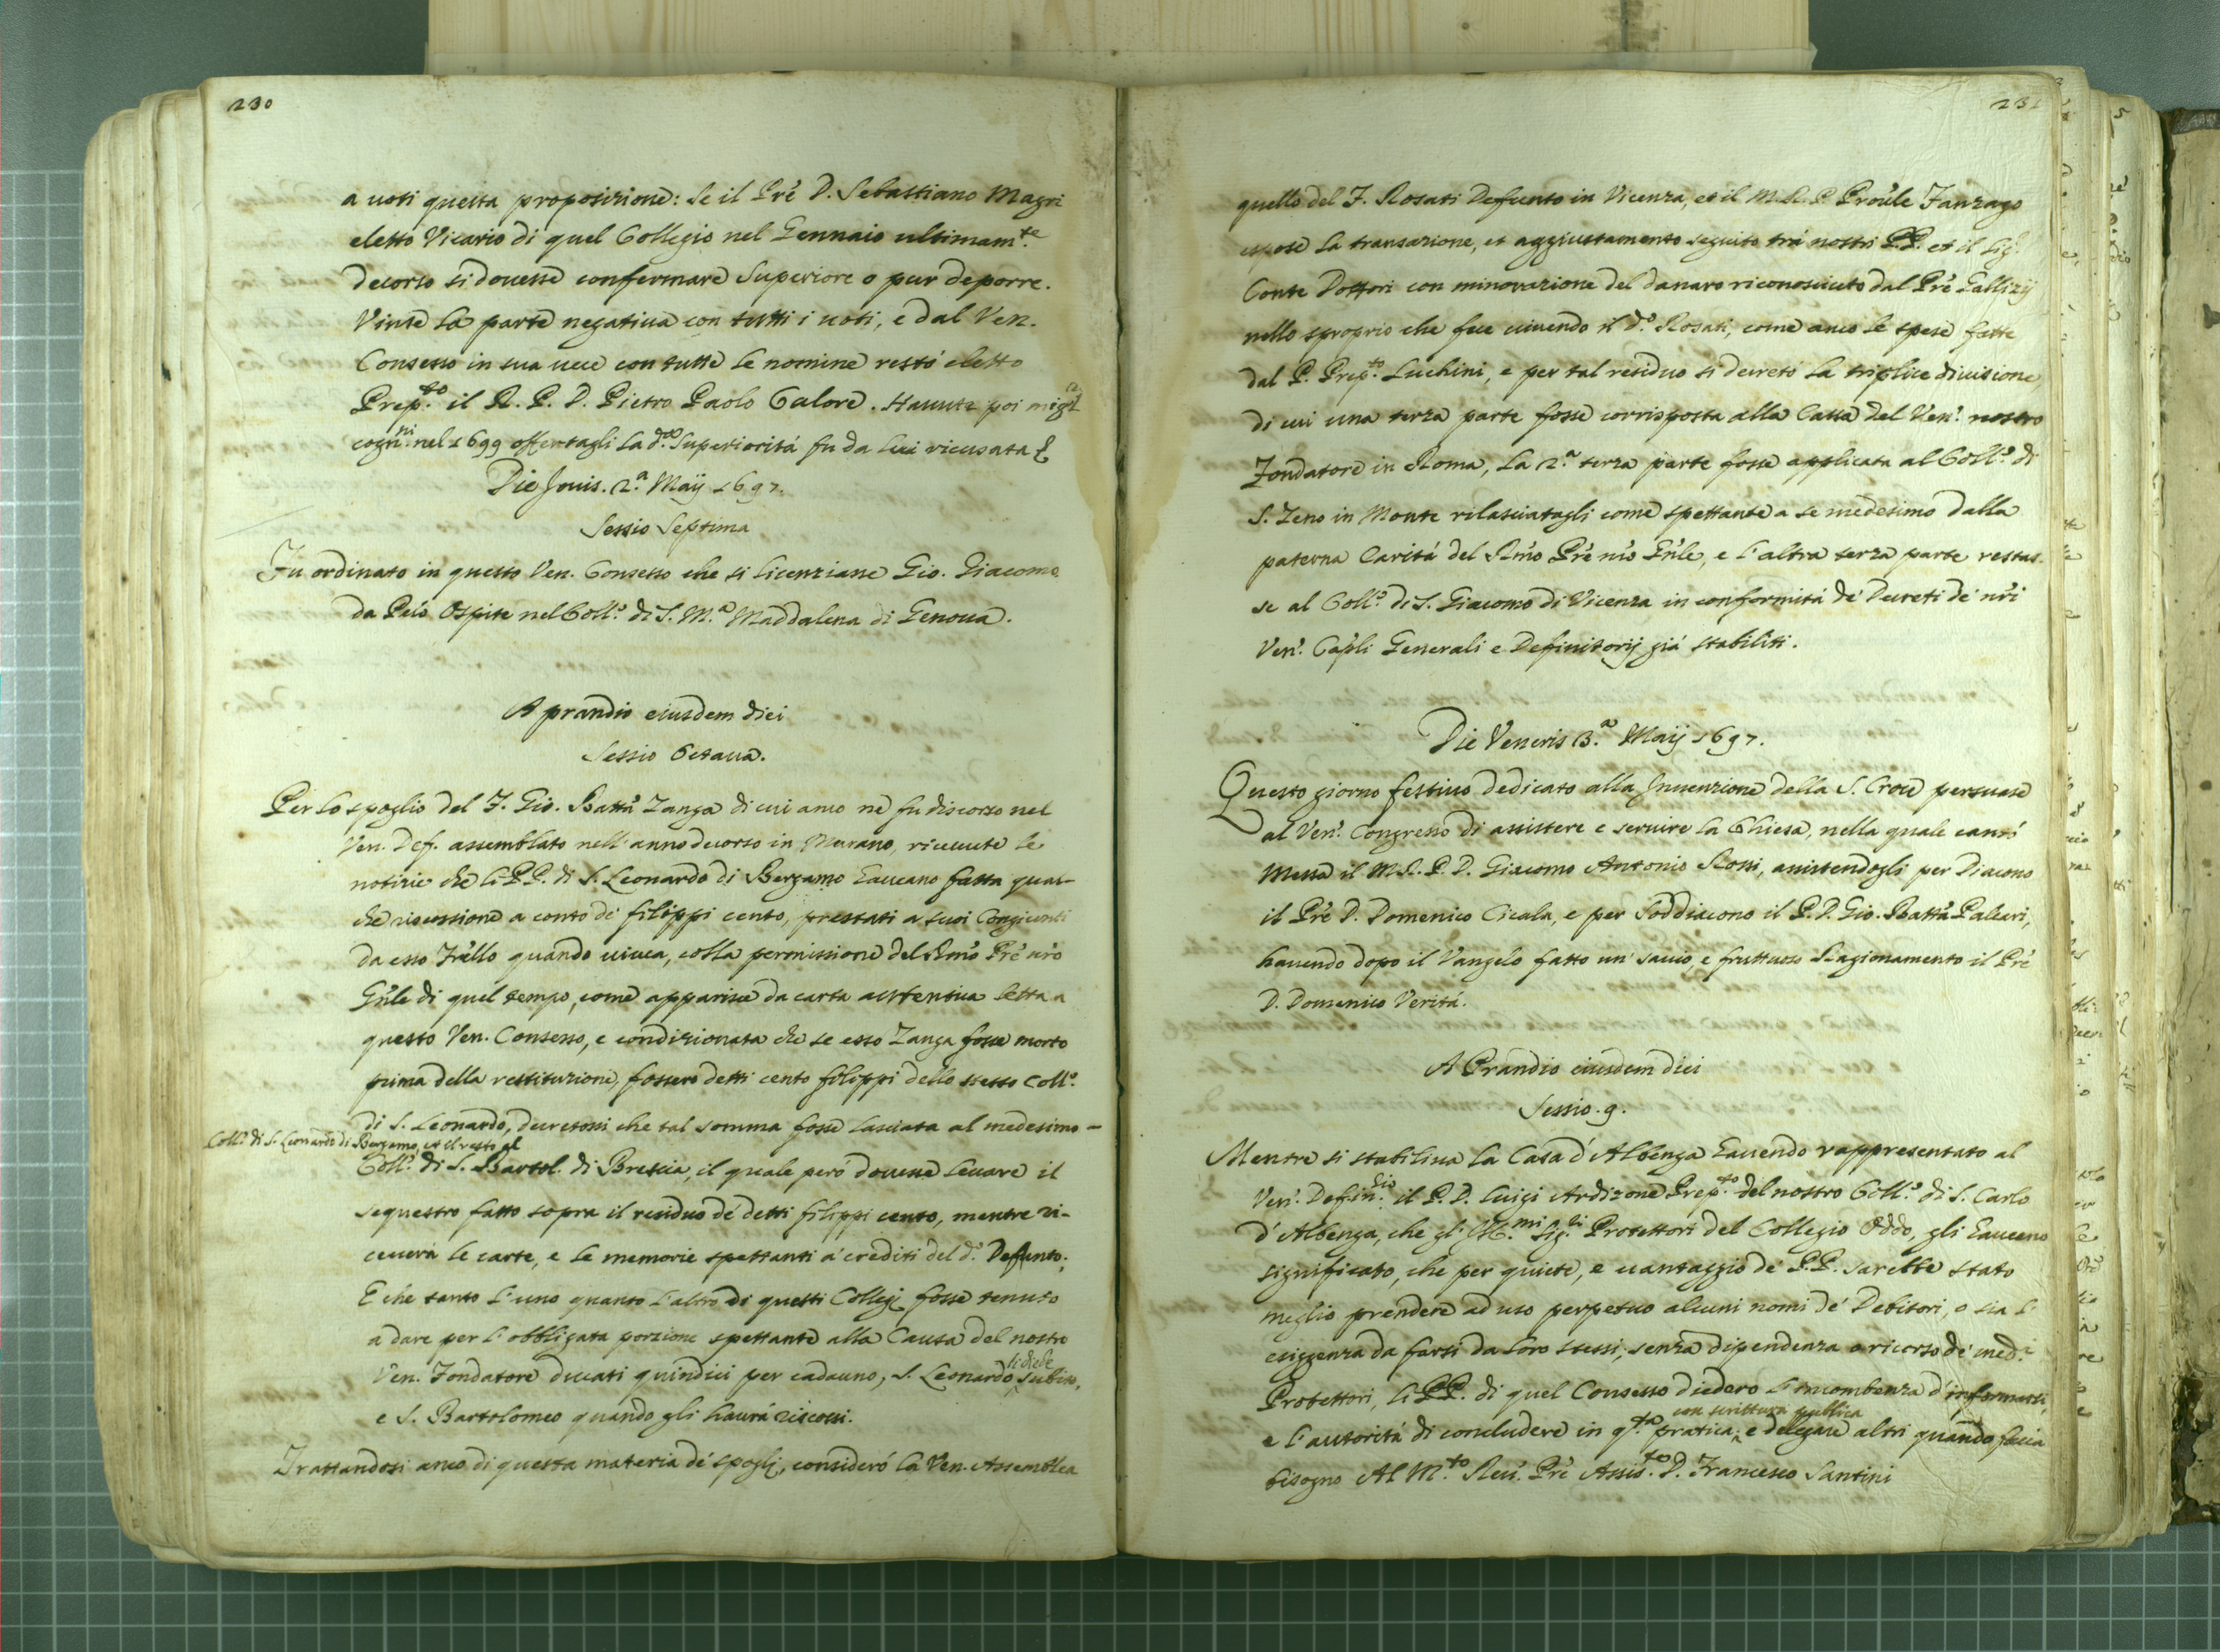 230
a uoti questa proposizione: Se il Pre D. Sebastiano Magri
eletto Vicario di quel Collegio nel Gennaio ultimam.te
decorso si douesse confermare Superiore o pur deporre.
Vinse la parte negatiua con tutti i uoti, e dal Ven.
Consesso in sua uece con tutte le nomine restò eletto
Prep.to il R. P. D. Pietro Paolo Calore. Hauute poi
cogn.ni nel 1699 offertagli la d.a Superiorità fu da lui ricusata
Die Jouis. 2.a Maij 1697.
Sessio Septima
Fu ordinato in questo Ven. Consesso che si licenziane Gio. Giacomo
da Pelò Ospite nel Coll.o di S. M.a Maddalena di Genoua.
A prandio eiusdem diei
Sessio Octaua.
Per lo spoglio del F. Gio. Batta Zanga di cui anco ne fu discorso nel
Ven. Def. assemblato nell'anno decorso in Murano, riceuute le
notizie che li PP. di S. Leonardo di Bergamo haueano fatta qual-
che riscossione a conto de filippi cento, prestati a suoi Congiunti
da esso Frello quando uiuea, colla permissione del Rmo Pre nro
Gnle di quel tempo, come apparisce da carta autentica letta a
questo Ven. Consesso, e condizionata che se esso Zanga fosse morto
prima della restituzione, fossero detti cento filippi dello stesso Coll.o
di S. Leonardo, decretossi che tal somma fosse lasciata al medesimo -
Coll.o di S. Leonardo di Bergamo, et il resto al
Coll.o di S. Bartol. di Brescia, il quale però douesse leuare il
sequestro fatto sopra il residuo de' detti filippi cento, mentre ri-
ceuerà le carte, e le memorie spettanti a' crediti del d.o Defunto;
E che tanto l'uno quanto l'altro di questi Collegij fosse tenuto
a dare per l'obbligata porzione spettante alla Causa del nostro
si diede
Ven. Fondatore ducati quindici per cadauno, S. Leonardo subito,
e S. Bartolomeo quando gli haurà riscossi.
Trattandosi anco di questa materia de' spogli, considerò la Ven. Assemblea
231
quello del F. Rosati Defunto in Vicenza, et il M. R. P. Proule Fanzago
espose la transazione, et aggiustamento seguito trà nostri PP. et il Sig.r
Conte Dottori con minorazione del danaro riconosciuto dal Pre Gallizij
nello sproprio che fece uiuendo il d.o Rosati, come anco le spese fatte
dal P. Prep.to Luchini, e per tal residuo si decretò la triplice diuisione,
di cui una terza parte fosse corrisposta alla Cassa del Ven. nostro
Fondatore in Roma, la 2.a terza parte fosse applicata al Coll.o di
S. Zeno in Monte rilasciatagli come spettante a se medesimo dalla
paterna Carità del Rmo Pre nro Gnle, e l'altra terza parte restas-
se al Coll.o di S. Giacomo di Vicenza in conformità de' Decreti de' nri
Ven. Capli Generali e Definitorij già stabiliti.
Die Veneris 3.a Maij 1697.
Questo giorno festiuo dedicato alla Inuenzione della S. Croce persuase
al Ven. Congresso di assistere e seruire la Chiesa, nella quale cantò
Messa il M. R. P. D. Giacomo Antonio Rossi, assistendogli per Diacono
il Pre D. Domenico Cicala, e per Soddiacono il P. D. Gio. Batta Paleari,
hauendo dopo il Vangelo fatto un' sauio, e fruttuoso Ragionamento il Pre
D. Domenico Verità.
A Prandio eiusdem diei
Sessio. 9.
Mentre si stabiliua la Casa d'Albenga hauendo rappresentato al
Ven. Defin.rio il P. D. Luigi Ardizone Prep.to del nostro Coll.o di S. Carlo
d'Albenga, che gl'Ill.mi Sig.ri Protettori del Collegio Oddo, gli haueano
significato, che per quiete, e uantaggio de' PP. sarebbe stato
meglio prendere ad uso perpetuo alcuni nomi de' Debitori, o sia l'
esiggenza da farsi da loro stessi, senza dipendenza o ricorso de' med.i
Protettori, li PP. di quel Consesso diedero l'incombenza d'informarsi,
con scrittura publica
e l'autorità di concludere in q.ta pratica, e delegare altri quando facia
bisogno Al M.to Reu. Pre Assis.te D. Francesco Santini